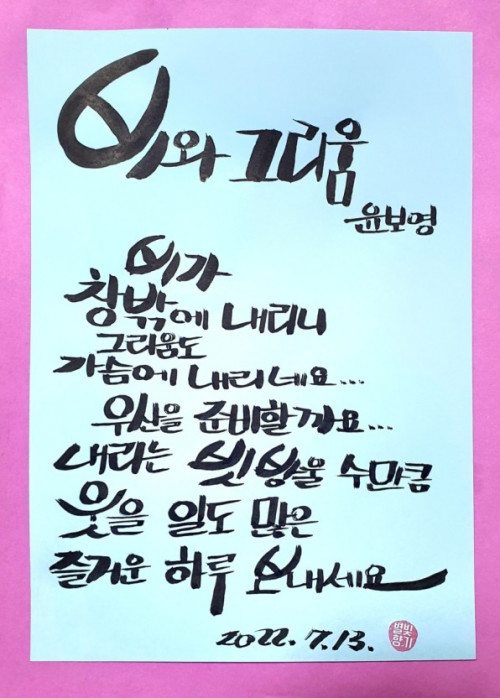 비와 그리움
윤보영
비가
창밖에 내리니
그리움도
가슴에 내리네요...
우산을 준비할까요...
내리는 빗방울 수만큼
웃을 일도 많은
즐거운 하루 보내세요
2022. 7. 13.
별빛
향기